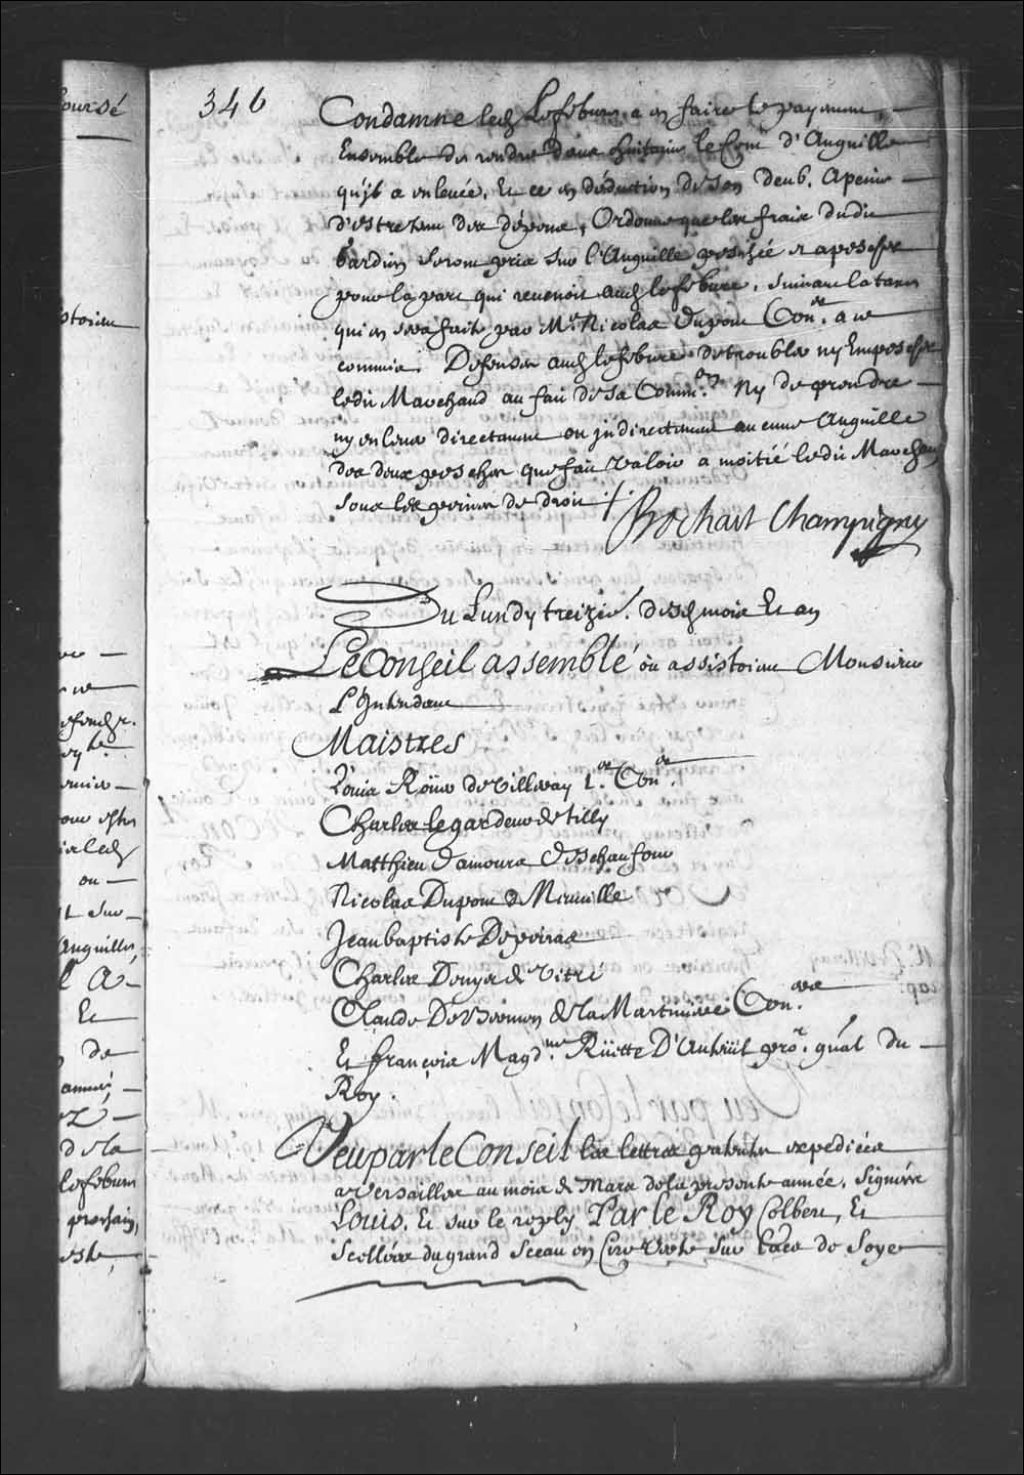 oursé
346
Condamne led. Lefebvre a en faire le payement,
Ensemble de rendre deux huitains le Cent d'Anguille
qu'jl a enlevée, Et ce en déduction de son deub, A peine
d'estre tenu des dépens, Ordonne que les fraix dudit
bardin seront pris sur l'Anguille peschée et a pescher
pour la part qui revenoit aud. lefebvre, suivant la taxe
qui en sera faite par Me. Nicolas Dupont Coner. a ce
commis. Defenses aud. lefebvre de troubler ny Empescher
ledit Marchand au fait de sa Common. Ny de prendre
ny enlever directement ou jndirectement aucune Anguille
des deux pesches que fait valoir a moitié ledit Marchand
sous les peines de droit ./.
Bochart Champigny
Du Lundy treizie. desd. mois Et an
Le Conseil assemblé où assistoient Monsieur
L'Intendant
Maistres
Loüis Roüer de Villeray 1er. Coner.
Charles legardeur de Tilly
Matthieu Damours Deschaufour
Nicolas Dupont de Neuville
Jean baptiste Depeiras
Charles Denys de Vitré
Claude De Bermen de la Martiniere Coners.
Et françois Magdne. Rüette D'Auteüil pror. gnal du
Roy.
Veu par le Conseil les lettres patentes expediées
a Versailles au mois de Mars de la presente année, Signées
Louis, Et sur le reply Par le Roy Colbert, Et
scellées du grand Sceau en Cire verte sur lacs de Soye
stoient
led.
ou
sur
Anguilles,
A
Et
de
dela
lefebvre
prochain,